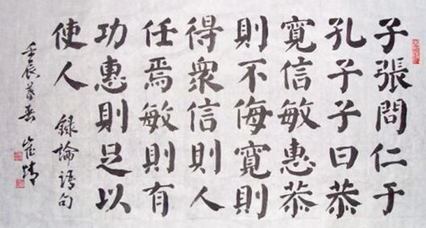 子張問仁于
孔子子曰恭
寬信敏惠恭
則不侮寬則
得衆信則人
任焉敏則有
功惠則足以
使人 錄論語句
壬辰暮春